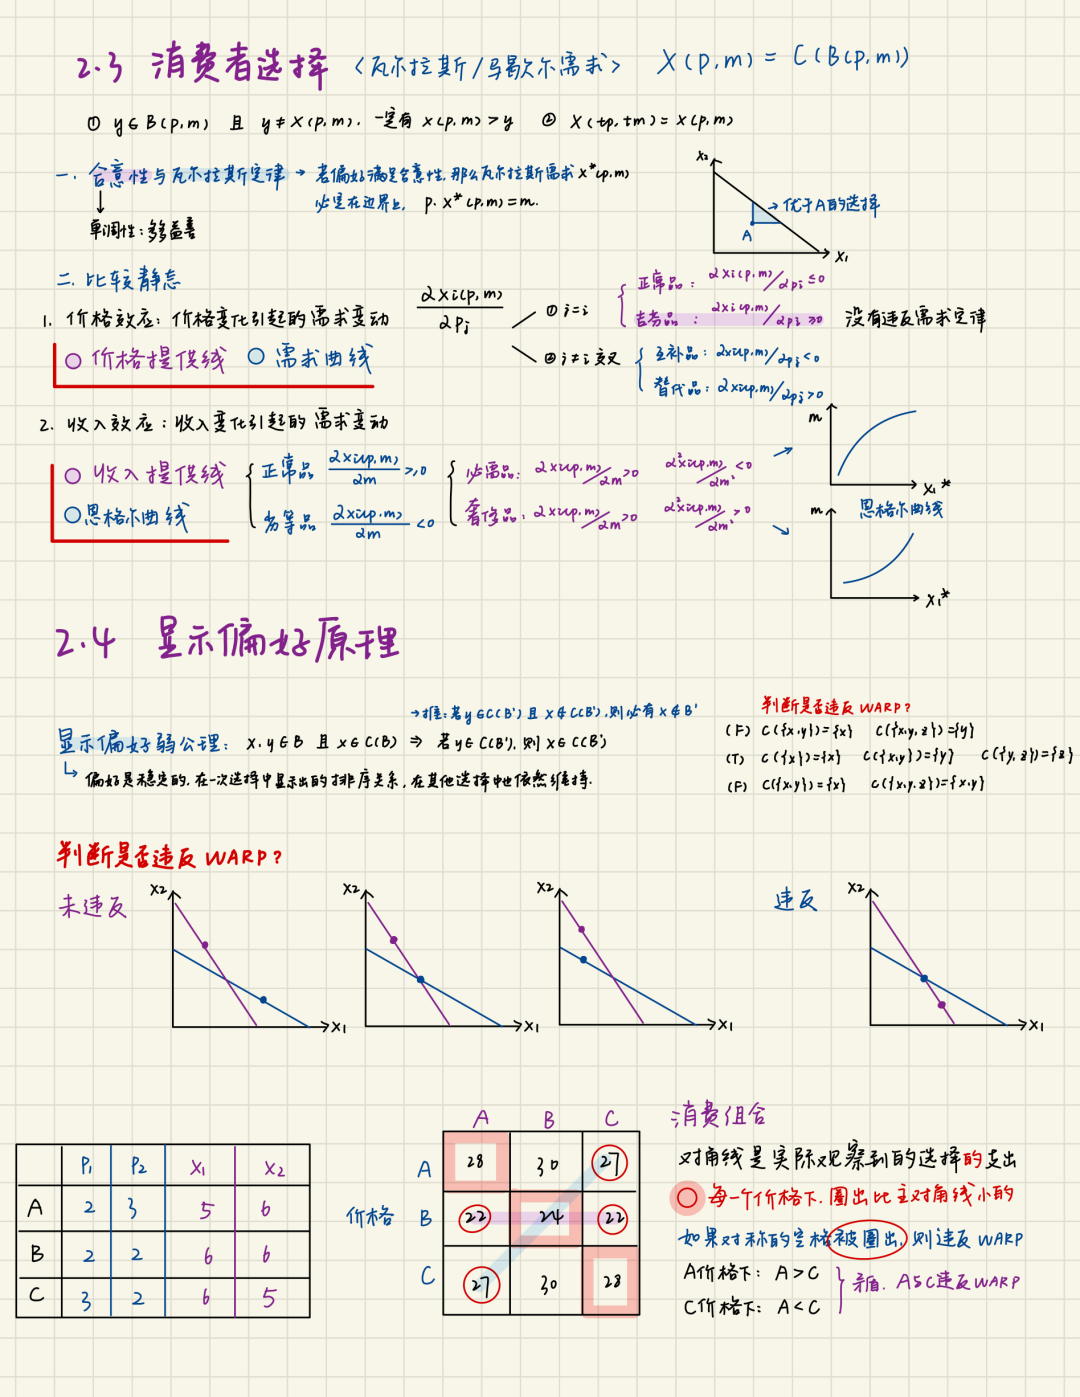 2.3 消费者选择 〈瓦尔拉斯/马歇尔需求〉 X(p,m) = C(B(p,m))
① y∈B(p,m) 且 y≠x(p,m). 一定有 x(p,m)>y ② X(tp,tm)=x(p,m)
一. 合意性与瓦尔拉斯定律 → 若偏好满足合意性,那么瓦尔拉斯需求 x*(p,m)
必定在边界上, p·x*(p,m)=m.
↓
单调性:多多益善
x₂
→优于A的选择
A
x₁
二. 比较静态
1. 价格效应: 价格变化引起的需求变动 ∂xi(p,m)/∂pj
① j=i { 正常品: ∂xi(p,m)/∂pi ≤0
吉芬品: ∂xi(p,m)/∂pi ≥0 没有违反需求定律
② j≠i 交叉 { 互补品: ∂xi(p,m)/∂pj<0
替代品: ∂xi(p,m)/∂pj>0
○ 价格提供线 ○ 需求曲线
2. 收入效应: 收入变化引起的需求变动
○ 收入提供线 { 正常品 ∂xi(p,m)/∂m ≥0 { 必需品: ∂xi(p,m)/∂m>0 ∂²xi(p,m)/∂m²<0
○恩格尔曲线 劣等品 ∂xi(p,m)/∂m <0 奢侈品: ∂xi(p,m)/∂m>0 ∂²xi(p,m)/∂m²>0
m
x₁*
恩格尔曲线
m
x₁*
2.4 显示偏好原理
→推: 若y∈C(B') 且 x∉C(B'), 则必有 x∉B'
显示偏好弱公理: x,y∈B 且 x∈C(B) ⇒ 若y∈C(B'), 则 x∈C(B')
↳ 偏好是稳定的, 在一次选择中显示出的排序关系, 在其他选择中也依然维持.
判断是否违反 WARP?
(F) C({x,y})={x} C({x,y,z})={y}
(T) C({x})={x} C({x,y})={y} C({y,z})={z}
(F) C({x,y})={x} C({x,y,z})={x,y}
判断是否违反 WARP?
未违反
x₂
x₁
x₂
x₁
x₂
x₁
违反
x₂
x₁
P₁ P₂ X₁ X₂
A 2 3 5 6
B 2 2 6 6
C 3 2 6 5
A B C 消费组合
价格
A 28 30 27
B 22 24 22
C 27 30 28
对角线是实际观察到的选择的支出
○ 每一个价格下, 圈出比主对角线小的
如果对称的空格被圈出, 则违反 WARP
A价格下: A>C
C价格下: A<C
} 矛盾. A与C违反WARP